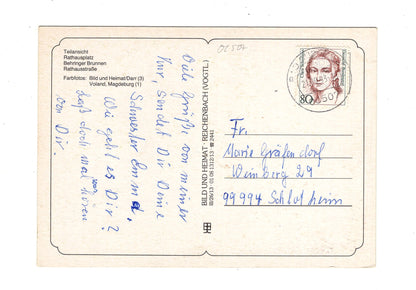 Teilansicht
Rathausplatz
Behringer Brunnen
Rathausstraße
Farbfotos: Bild und Heimat/Darr (3)
Voland, Magdeburg (1)
Viele Grüße von meiner
Kur, sendet Dir Deine
Schwester Emma,
Wie geht es Dir?
Laß doch mal
was
hören
von Dir.
BILD UND HEIMAT · REICHENBACH (VOGTL.)
80
507
Fr.
Marie Gräfendorf
Weinberg 29
99994 Schlotheim